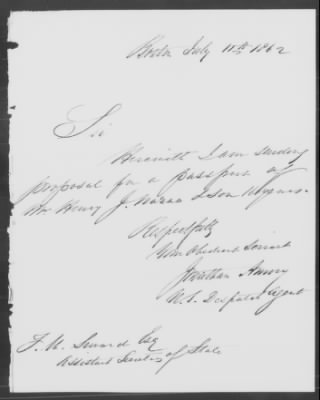 Boston July 11th 1862
Sir
Herewith I am sending
proposal for a passport of
Mr Henry J.
Respectfully
Your Obedient Servant
Jonathan Amory
U.S. Despatch Agent
F. W. Seward Esq
Assistant Secretary of State